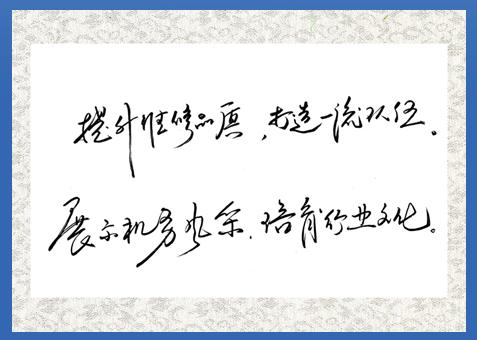 提升维修品质，打造一流队伍。
展示机务风采，培育行业文化。